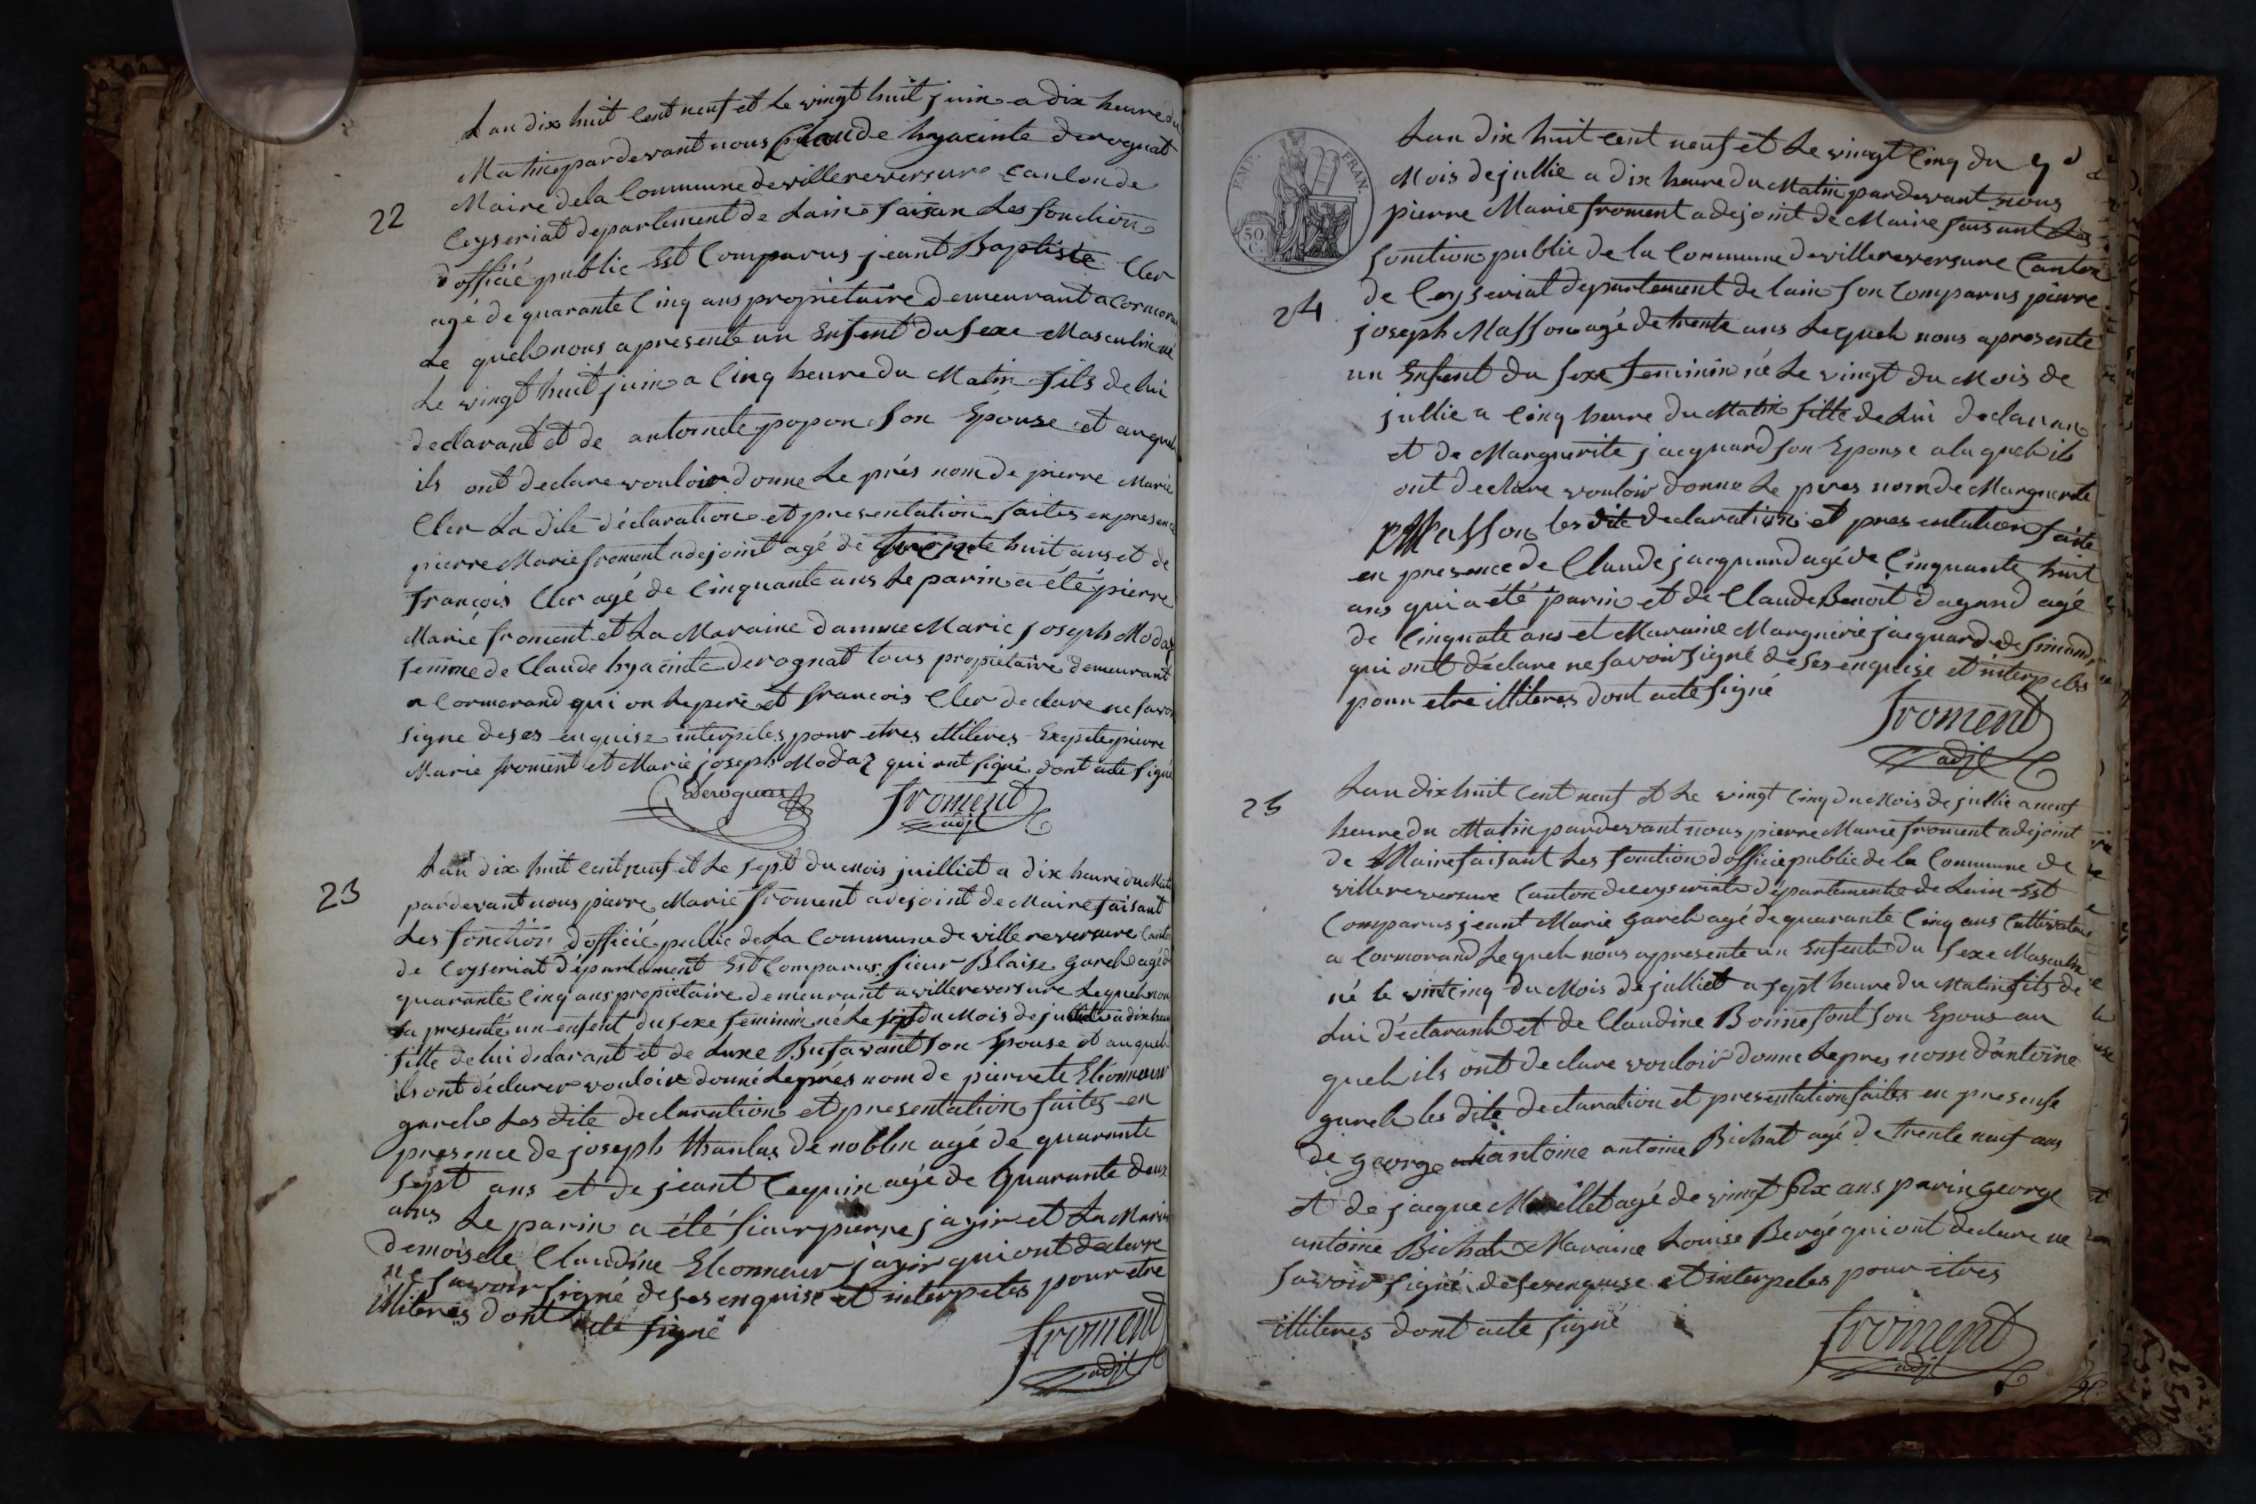 Lan dix huit cent neuf et le vingt huit juin a dix heure du
Matin pardevant nous Claude hyacinte derognat
Maire de la Commune de villereversure canton de
22
Ceyseriat departement de Lain faisan Les fonction
d'officié public Est Comparus jeant Baptiste Cler
agé de quarante Cinq ans propriétaire demeurant a Cormoran
Le quel nous a presente un Enfent du Sexe Masculin né
Le vingt huit juin a Cinq heure du Matin fils de lui
declarant et de antoinete popon Son Epouse et auquel
ils ont declare vouloir donne Le prés nom de pierre Marie
Cler La dite déclaration et presentation faites en presence
pierre Marie froment adejoint agé de huit ans et de
françois Cler agé de Cinquante ans Le parin a été pierre
Marie froment et La Maraine damme Marie joseph Modaz
femme de Claude hyacinte derognat tous propietaire demeurant
a Cormorand qui on le pere et francois Cler declare ne savoir
signe deses enquise interpeles pour etres illiteres Exepte pierre
Marie froment et Marie joseph Modaz qui ont signé dont acte signé
Derognat froment
adjt
23
Lan dix huit cent neuf et Le sept du mois juilliet a dix heure du Matin
pardevant nous pierre Marie froment adejoint de Maire faisant
Les fonction d'officié public de La Commune de villereversure Canton
de Ceyseriat département Est Comparus sieur Blaise Garel agé de
quarante Cinq ans propietaire demeurant a villereversure Lequel nous
a presenté un enfent du sexe feminin né Le sept du Mois de a dix heure
fille de lui declarant et de Luxe Busavant son Epouse et auquel
ils ont déclarer vouloir donné Le prés nom de pierrete Eleonneur
garel Les dite declaration et presentation faites en
presence de joseph de noblin agé de quarante
sept ans et de jeant Cequin agé de quarante deux
ans Le parin a été sieur pierre jayir et La Marine
demoiselle Claudine Eleonneur jayir qui ont declarre
ne savoir signé de ses enquise et interpeles pour etre
illiteres dont acte signé
froment
adjt
EMP. FRAN.
50
C.
Lan dix huit cent neuf et Le vingt Cinq du
Mois de jullie a dix heure du Matin pardevant nous
pierre Marie froment adejoint de Maire faisant Les
fonction public de la Commune de villereversure Canton
24
de Ceyseriat departement de lain son Comparus pierre
joseph Masson agé de trente ans Lequel nous a presente
un Enfent du sexe feminin né Le vingt du Mois de
jullie a Cinq heure du Matin fille de Lui declaran
et de Marguerite jacquard son Epouse a laquel ils
ont declare vouloir donne Le pres nom de Marguerite
Masson les dite declaration et presentation faite
en presence de Claude jacquard agé de Cinquante huit
ans qui a été parin et de Claude Benoit dagand agé
de Cinquate ans et Maraine Marguerie jacquard de simand
qui ont déclare ne savoir signé de ses enquise et interpeles
pour etre illiteres dont acte signé
froment
adjt
25
Lan dix huit Cent neuf et Le vingt Cinq du Mois de jullie a neuf
heure du Matin pardevant nous pierre Marie froment adejoint
de Maire faisant Les fonction d'officié public de la Commune de
villereversure Canton de ceyseriat département de Lain Est
Comparus jeant Marie Garel agé de quarante Cinq ans Cultivateur
a Cormorand Lequel nous a presente un Enfent du sexe Masculin
né le vintcinq du Mois de julliet a sept heure du Matin fils de
Lui déclarant et de Claudine Boinefont son Epous au
quel ils ont declare vouloir donne Le pres nom d'antoine
garel les dite declaration et presentation faites en presense
de george antoine Bichat agé de trente neuf ans
et de jacque Millet agé de vingt six ans parin george
antoine Bichat Maraine Louise Bergé qui ont declare ne
savoir signé de ses enquise et interpeles pour etres
illiteres dont acte signé
froment
adjt